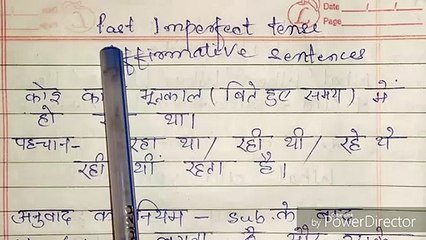 Date
Page
Past Imperfect tense
Affirmative sentences
कोई भूतकाल (बिते हुए समय) में
हो था।
पहचान- रहा था / रही थी / रहे थे
रही थीं रहता है।
अनुवाद नियम - sub. के बाद
by PowerDirector